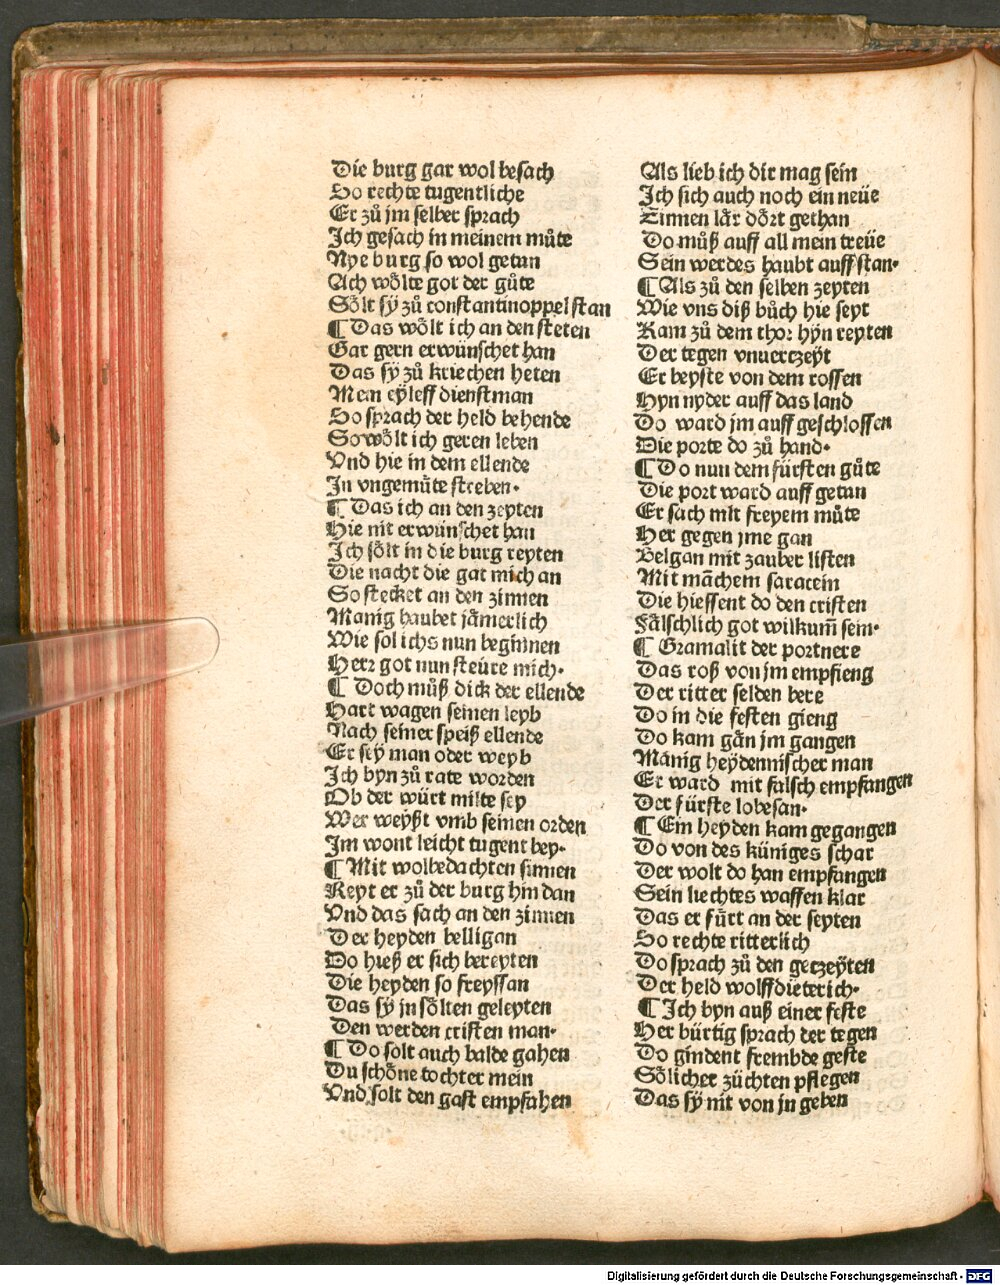 Die burg gar wol besach
So rechte tugentliche
Er zů jm selber sprach
Ich gesach in meinem můte
Nye burg so wol getan
Ach wölte got der gůte
Sölt sÿ zů constantinoppel stan
¶ Das wölt ich an den steten
Gar gern erwünschet han
Das sÿ zů kriechen heten
Mein eÿleff dienstman
So sprach der held behende
So wölt ich geren leben
Vnd hie in dem ellende
In vngemüte streben.
¶ Das ich an den zeyten
Hie nit erwünschet han
Ich sölt in die burg reyten
Die nacht die gat mich an
So stecket an den zinnen
Manig haubet jämerlich
Wie sol ichs nun beginnen
Herr got nun steüre mich.
¶ Doch můß dick der ellende
Hart wagen seinen leyb
Nach seiner speiß ellende
Er seÿ man oder weyb
Ich byn zů rate worden
Ob der würt milte sey
Wer weÿßt vmb seinen orden
Im wont leicht tugent bey.
¶ Mit wolbedachten sinnen
Reyt er zů der burg hin dan
Vnd das sach an den zinnen
Der heyden belligan
Do hieß er sich bereyten
Die heyden so freyssan
Das sÿ jn sölten geleyten
Den werden cristen man.
¶ Do solt auch balde gahen
Du schöne tochter mein
Vnd solt den gast empfahen
Als lieb ich dir mag sein
Ich sich auch noch ein neüe
Zinnen lär dört gethan
Do můß auff all mein treüe
Sein werdes haubt auff stan.
¶ Als zů den selben zeyten
Wie vns diß bůch hie seyt
Kam zů dem thor hyn reyten
Der tegen vnuerczeÿt
Er beyste von dem rossen
Hyn nyder auff das land
Do ward jm auff geschlossen
Die porte do zů hand.
¶ Do nun dem fürsten gůte
Die port ward auff getan
Er sach mit freyem můte
Her gegen jme gan
Belgan mit zauber listen
Mit mãchem saracein
Die hiessent do den cristen
Fälschlich got wilkum̃ sein.
¶ Gramalit der portnere
Das roß von jm empfieng
Der ritter selden bere
Do in die festen gieng
Do kam gän jm gangen
Manig heÿdennischer man
Er ward mit falsch empfangen
Der fürste lobesan.
¶ Ein heyden kam gegangen
Do von des küniges schar
Der wolt do han empfangen
Sein liechtes waffen klar
Das er fůrt an der seyten
So rechte ritterlich
Do sprach zů den gerzeÿten
Der held wolffdieterich.
¶ Ich byn auß einer feste
Her bürtig sprach der tegen
Do gindent frembde geste
Sölicher züchten pflegen
Das sÿ nit von jn geben
Digitalisierung gefördert durch die Deutsche Forschungsgemeinschaft - DFG